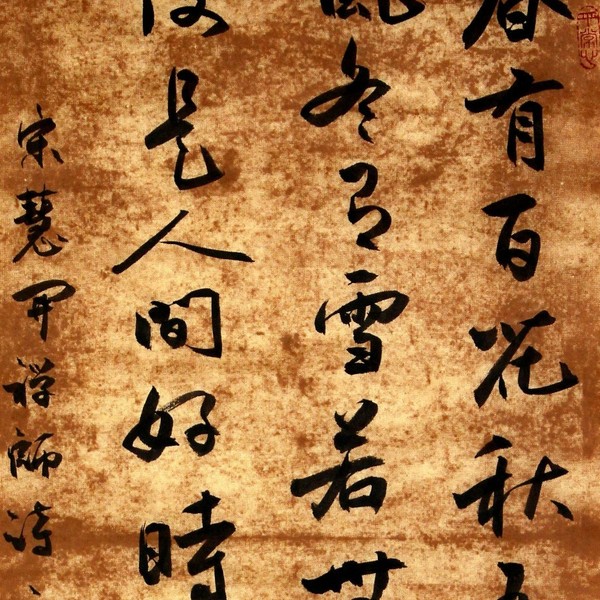 春有百花秋
冬有雪若
是人間好時
宋慧開禅師詩